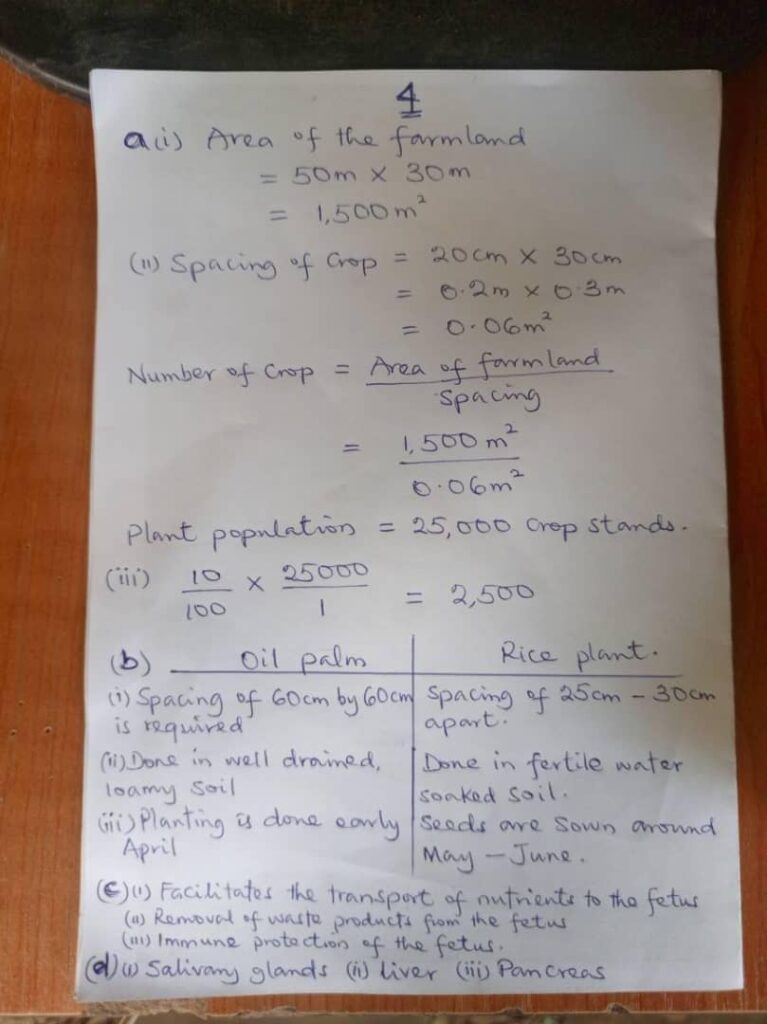 4
a(i) Area of the farmland
= 50m × 30m
= 1,500m²
(ii) Spacing of Crop = 20cm × 30cm
= 0.2m × 0.3m
= 0.06m²
Number of Crop = Area of farmland
Spacing
= 1,500 m²
0.06m²
Plant population = 25,000 Crop stands.
(iii) 10/100 × 25000/1 = 2,500
(b) Oil palm Rice plant.
(i) Spacing of 60cm by 60cm Spacing of 25cm – 30cm
is required apart.
(ii) Done in well drained, Done in fertile water
loamy soil soaked soil.
(iii) Planting is done early Seeds are sown around
April May – June.
(c)(i) Facilitates the transport of nutrients to the fetus
(ii) Removal of waste products from the fetus
(iii) Immune protection of the fetus.
(d)(i) Salivary glands (ii) liver (iii) Pancreas